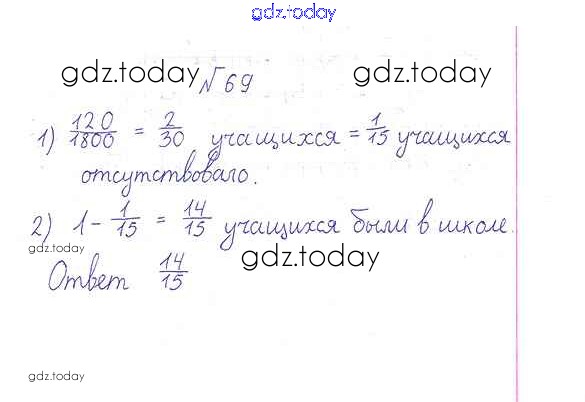 gdz.today
gdz.today № 69 gdz.today
1) 120/1800 = 2/30 учащихся = 1/15 учащихся
отсутствовало.
2) 1 - 1/15 = 14/15 учащихся были в школе.
gdz.today
gdz.today
Ответ 14/15
gdz.today